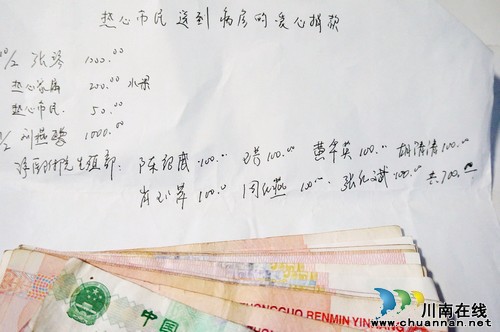 热心市民送到病房的爱心捐款
10/2 张琴 1200.00
热心家属 200.00 水果
热心市民 50.00
刘燕 1000.00
附院生殖部: 陈 100.00 100.00 黄华英 100.00 胡清清 100.00
肖 100.00 周 燕 100.00 张 斌 100.00 共700.00
中国
ZHONGGUO RENMIN YINHANG
川南在线
www.chuannan.net